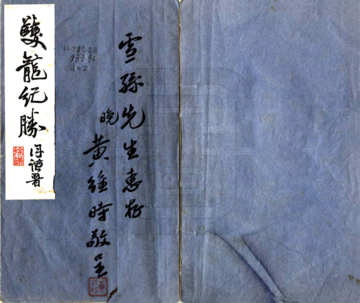 雙龍紀勝
署
雪孫先生惠存
晚
黃維時敬呈